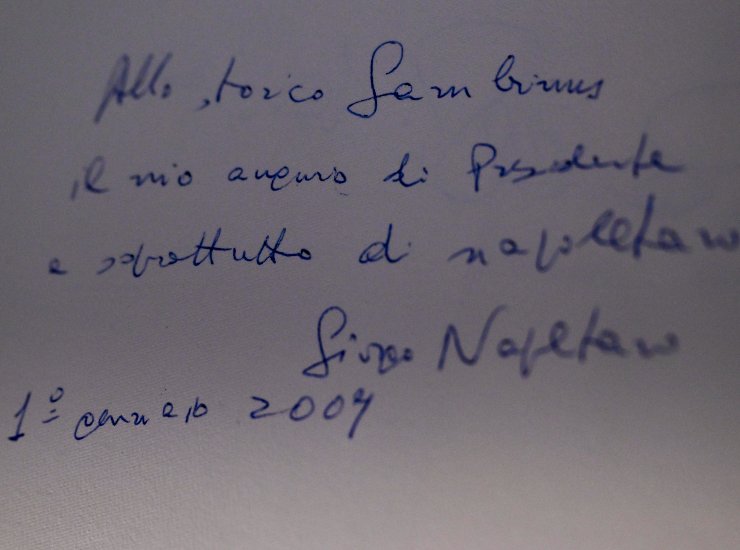 Allo storico Gambrinus
il mio augurio di Presidente
e soprattutto di napoletano
Giorgio Napolitano
1º gennaio 2009